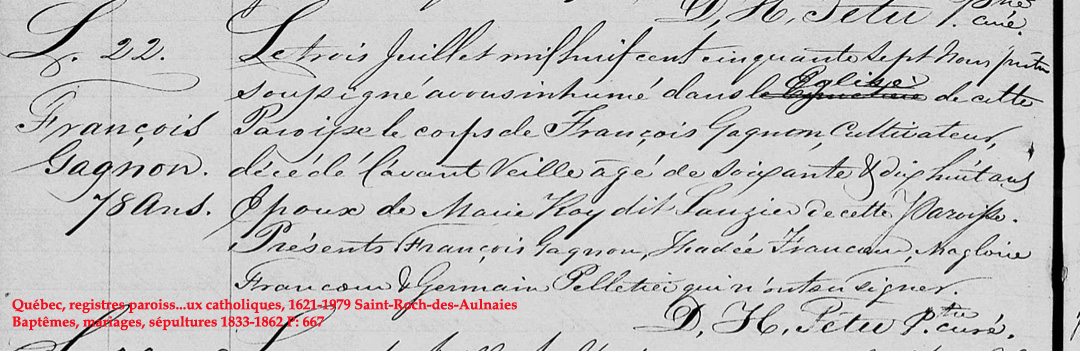 D, H, Têtu Ptre curé.
S. 22.
François
Gagnon.
78 Ans.
Le trois Juillet mil huit cent cinquante sept Nous prêtre
soussigné avons inhumé dans l'Eglise de cette
Paroisse le corps de François Gagnon, Cultivateur,
décédé l'avant Veille âgé de soixante & dix huit ans
Epoux de Marie Roy dit Lauzier de cette Paroisse.
Présents François Gagnon, Thadée Francœur, Magloire
Francœur & Germain Pelletier qui n'ont su signer.
D, H, Têtu Ptre curé.
Québec, registres paroiss...ux catholiques, 1621-1979 Saint-Roch-des-Aulnaies
Baptêmes, mariages, sépultures 1833-1862 P: 667